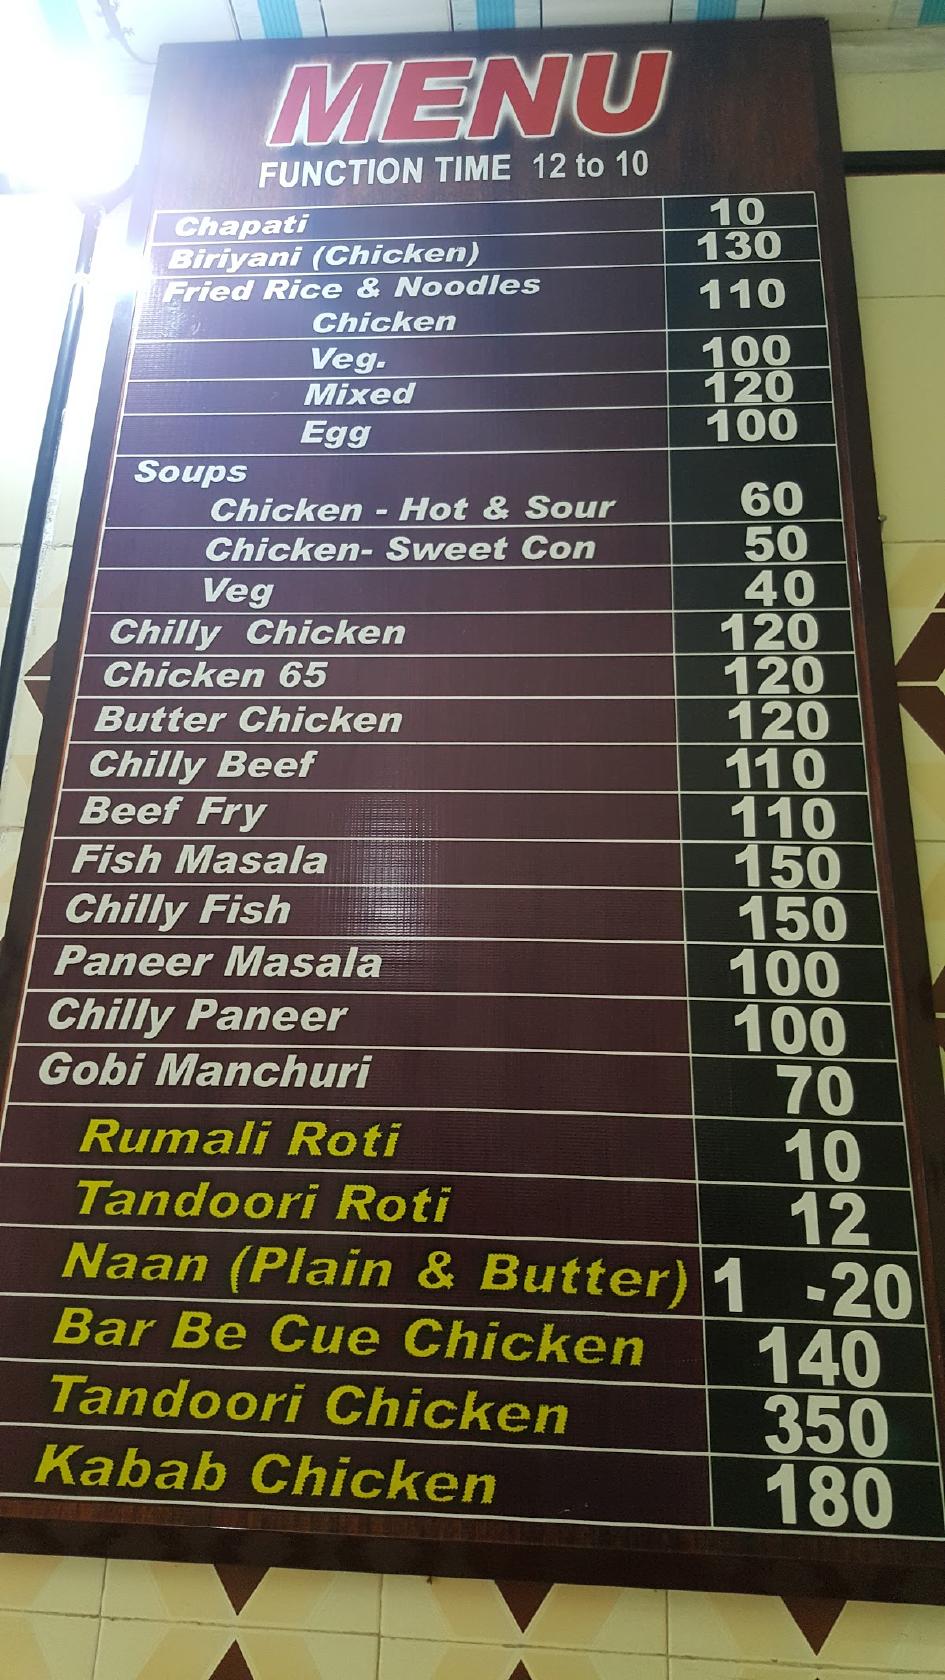 MENU
FUNCTION TIME 12 to 10
Chapati 10
Biriyani (Chicken) 130
Fried Rice & Noodles
Chicken 110
Veg. 100
Mixed 120
Egg 100
Soups
Chicken - Hot & Sour 60
Chicken- Sweet Con 50
Veg 40
Chilly Chicken 120
Chicken 65 120
Butter Chicken 120
Chilly Beef 110
Beef Fry 110
Fish Masala 150
Chilly Fish 150
Paneer Masala 100
Chilly Paneer 100
Gobi Manchuri 70
Rumali Roti 10
Tandoori Roti 12
Naan (Plain & Butter) 1 -20
Bar Be Cue Chicken 140
Tandoori Chicken 350
Kabab Chicken 180